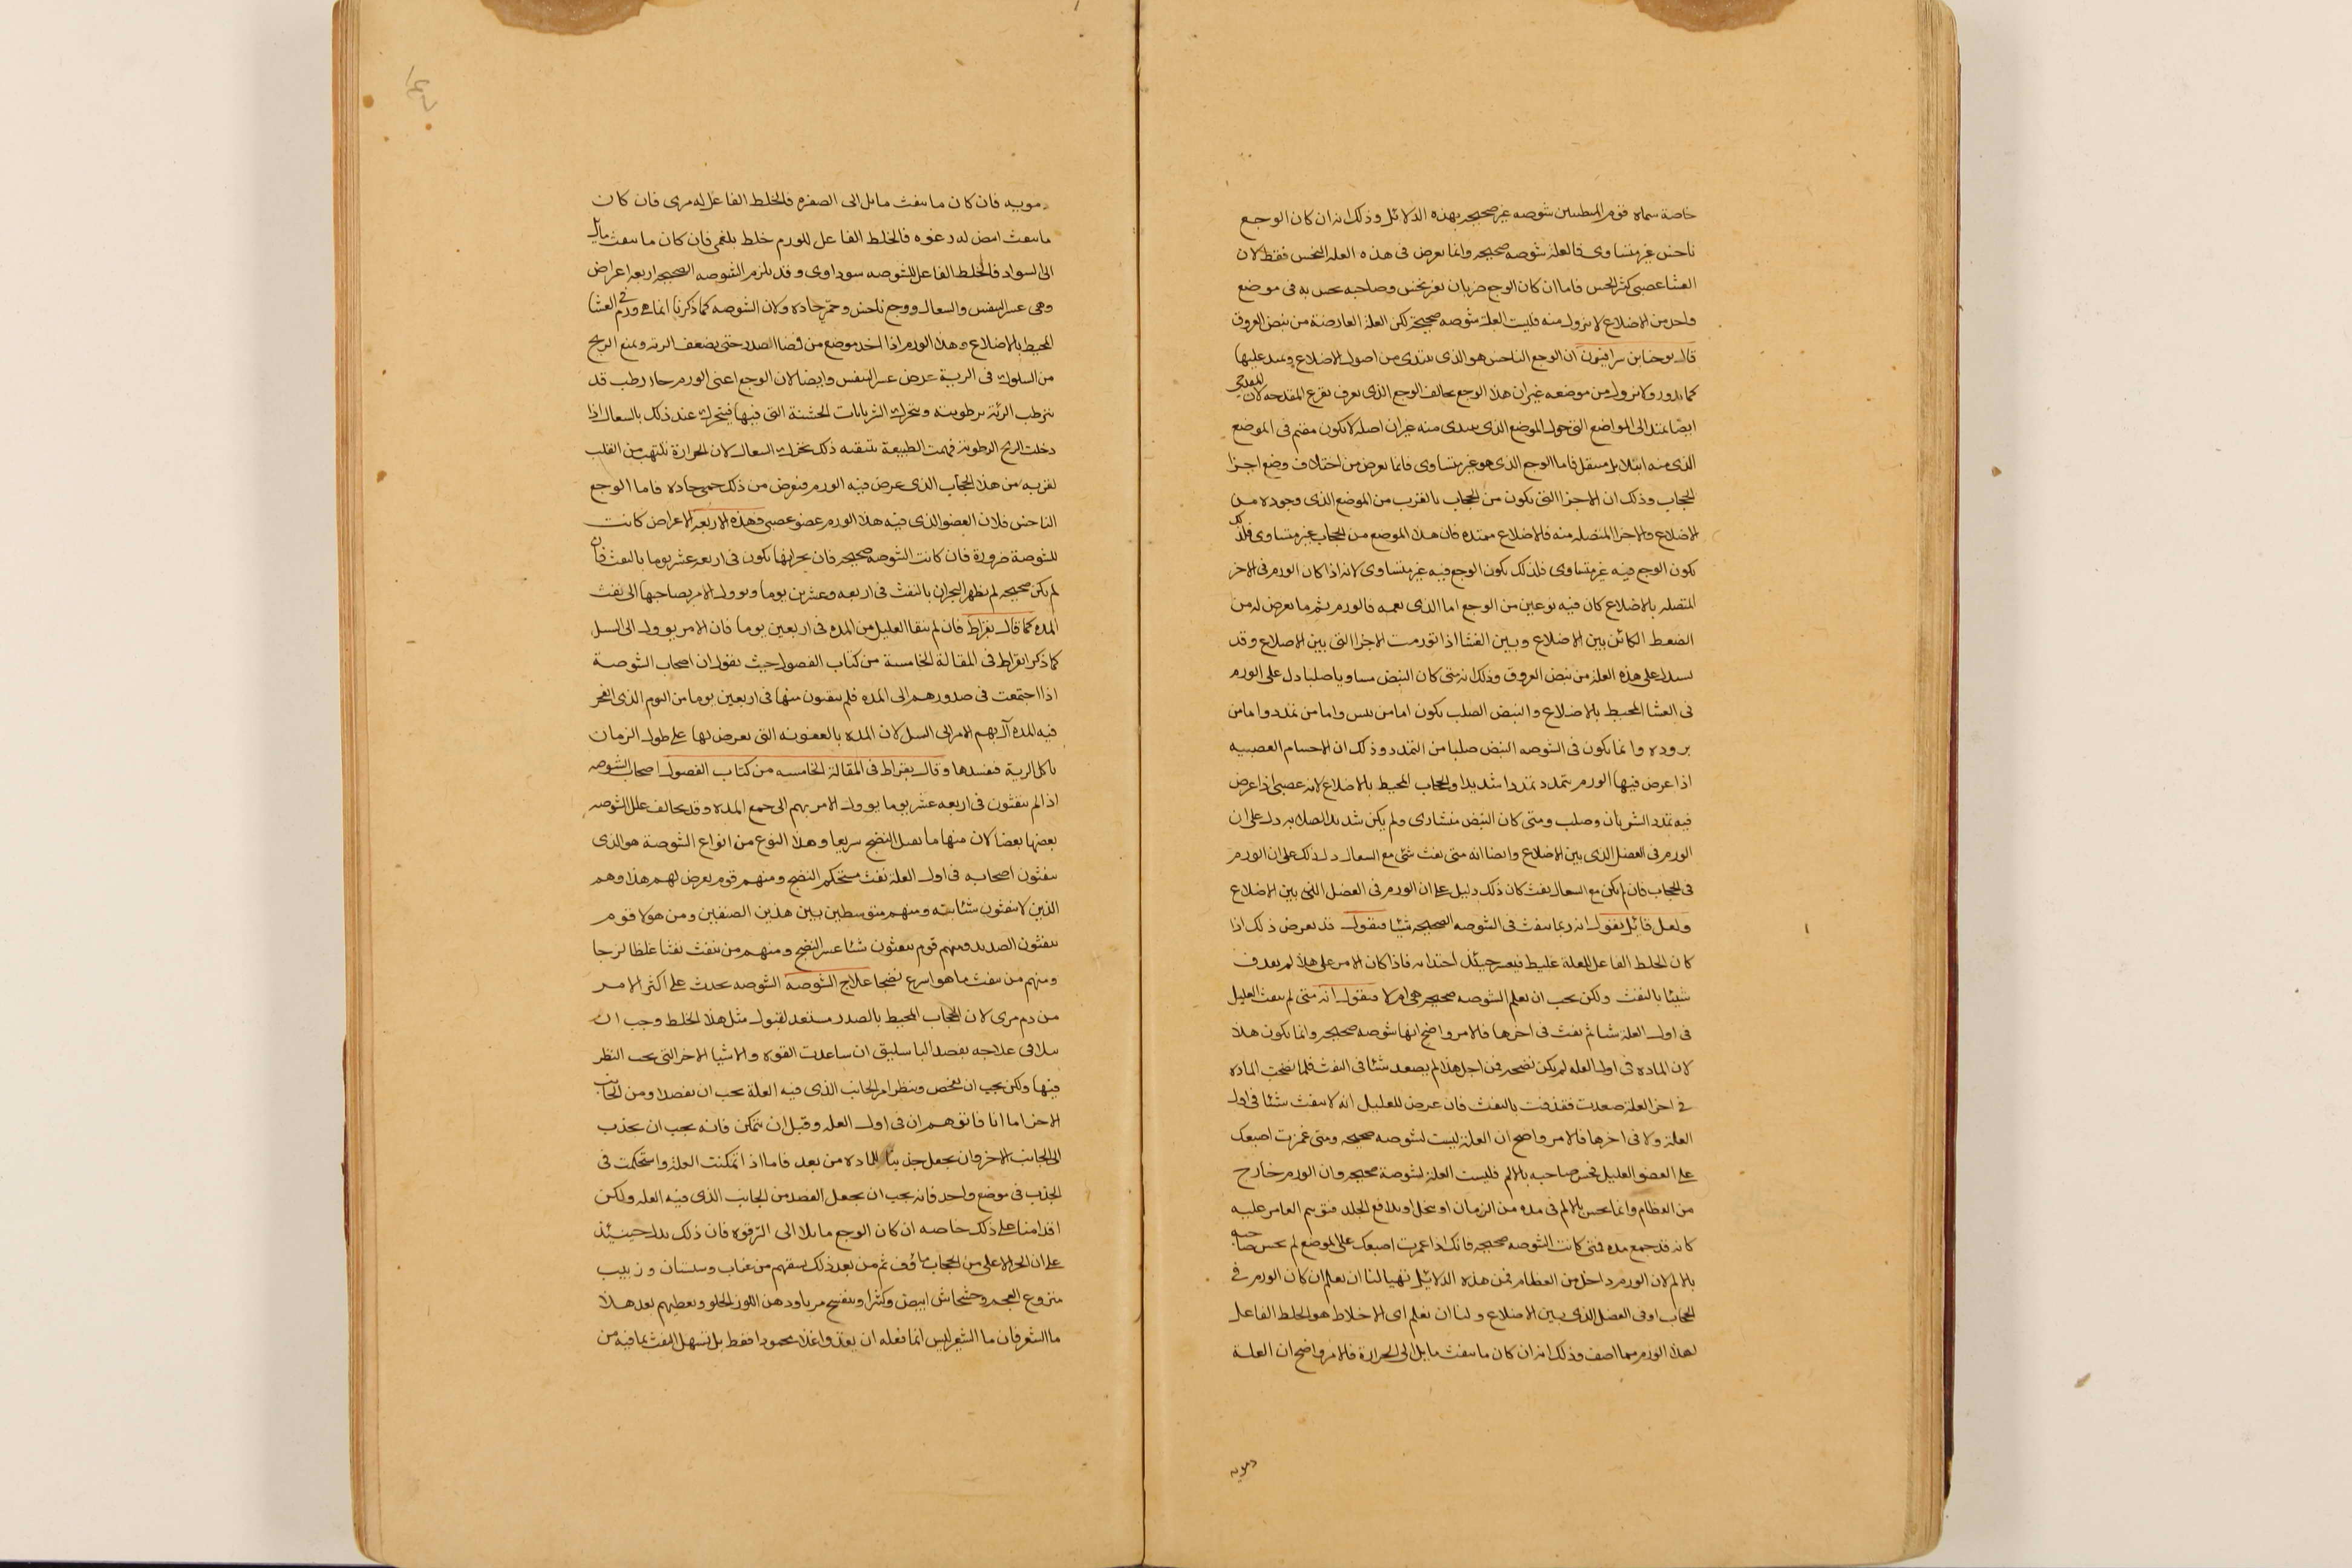 خاصة سماه قوم المتطببين شوصه غير صحيحه بهذه الدلائل وذلك انه ان كان الوجع
ناخس غير متساوى فالعلة شوصه صحيحه وانما يعرض فى هذه العله النخس فقط لان
الغشا عصبى كثير الحس فاما ان كان الوجع ضربان بغير نخس وصاحبه يحس به فى موضع
واحد من الاضلاع لا يزول منه فليست العلة شوصه صحيحة لكن العلة العارضة من نبض العروق
قال يوحنا بن سرافيون ان الوجع الناخس هو الذى يبتدى من اصول الاضلاع ويمتد عليها
كما يدور ولا يزول من موضعه غير ان هذا الوجع يخالف الوجع الذى يعرف بقرع المقدحه لان المقدحى
ايضا يمتد الى المواضع التى حول الموضع الذى يبتدى منه غير ان اصله لا يكون مقيم فى الموضع
الذى منه ابتدا بل منتقل فاما الوجع الذى هو غير متساوى فانما يعرض من اختلاف وضع اجزا
الحجاب وذلك ان الاجزا التى تكون من الحجاب بالقرب من الموضع الذى وجوده من
الاضلاع والاجزا المتصله منه فالاضلاع ممتده فان هذا الموضع من الحجاب غير متساوى فلذلك
يكون الوجع فيه غير متساوى فلذلك يكون الوجع فيه غير متساوى لانه اذا كان الورم فى الاخر
المتصله بالاضلاع كان فيه نوعين من الوجع اما الذى يعمه فالورم ثم ما يعرض له من
الضغط الكائن بين الاضلاع وبين الغشا اذا تورمت الاجزا التى بين الاضلاع وقد
يستدل على هذه العلة من نبض العروق وذلك انه متى كان النبض مساويا صلبا دل على الورم
فى الغشا المحيط بالاضلاع والنبض الصلب يكون اما من يبس واما من تمدد واما من
بروده وانما يكون فى الشوصه النبض صلبا من التمدد وذلك ان الاجسام العصبيه
اذا عرض فيها الورم يتمدد تمددا شديدا والحجاب المحيط بالاضلاع لانه عصبى اذا عرض
فيه تمدد الشريان وصلب ومتى كان النبض منشارى ولم يكن شديد الصلابه دل على ان
الورم فى العضل الذى بين الاضلاع وايضا انه متى نفث شئ مع السعال دل ذلك على ان الورم
فى الحجاب فان لم يكن مع السعال نفث كان ذلك دليل على ان الورم فى العضل التى بين الاضلاع
ولعل قائل يقول انه ربما ينفث فى الشوصه الصحيحه شيئا فنقول قد يعرض ذلك اذا
كان الخلط الفاعل للعلة غليظ فيعسر حينئذ اجتذابه فاذا كان الامر على هذا لم يعدف
شيئا بالنفث ولكن يجب ان نعلم الشوصه صحيحه هى ام لا فنقول انه متى لم ينفث العليل
فى اول العلة شيئا ثم نفث فى اخرها فالامر واضح انها شوصه صحيحه وانما يكون هذا
لان الماده فى اول العله لم يكن نضيجه فمن اجل هذا لم يصعد شيئا فى النفث فلما نضجت الماده
فى اخر العلة صعدت فقذفت بالنفث فان عرض للعليل انه لا ينفث شيئا فى اول
العلة ولا فى اخرها فالامر واضح ان العلة ليست بشوصه صحيحه ومتى غمزت اصبعك
على العضو العليل يحس صاحبه بالالم فليست العلة بشوصة صحيحه وان الورم خارج
من العظام وانما يحس بالالم فى مده من الزمان او ينحل او يدافع الجلد فتوهم الغامز عليه
كانه قد جمع مده فمتى كانت الشوصه صحيحه فانك اذا غمزت اصبعك على الموضع لم يحس صاحبه
بالالم لان الورم داخل من العظام فمن هذه الدلائل تهيا لنا ان نعلم ان كان الورم فى
الحجاب او فى العضل الذى بين الاضلاع ولنا ان نعلم اى الاخلاط هو الخلط الفاعل
لهذا الورم مما اصف وذلك انه ان كان ما ينفث مايل الى الحرارة فالامر واضح ان العلة
دمويه
دمويه فان كان ما ينفث مايل الى الصفره فالخلط الفاعل له مرى فان كان
ما ينفث ابيض له رغوه فالخلط الفاعل للورم خلط بلغمى فان كان ما ينفث مايل
الى السواد فالخلط الفاعل للشوصه سوداوى وقد يلزم الشوصه الصحيحه اربعه اعراض
وهى عسر التنفس والسعال ووجع ناخس وحمى حاده ولان الشوصه كما ذكرنا انما هى ورم فى الغشا
المحيط بالاضلاع وهذا الورم اذا اخذ موضع من فضا الصدر حتى يضعف الرئه ويمنع الريح
من السلوك فى الرية عرض عسر التنفس وايضا لان الوجع اعنى الورم حار رطب قد
تترطب الرئة برطوبته وتتحرك الشريانات الخشنة التى فيها فيتحرك عند ذلك بالسعال اذا
دخلت الريح الرطوبة فهمت الطبيعة بتنقيه ذلك بتحرك السعال لان الحرارة تلتهب من القلب
لقربه من هذا الحجاب الذى عرض فيه الورم فيعرض من ذلك حمى حاده فاما الوجع
الناخس فلان العضو الذى فيه هذا الورم عضو عصبى فهذه الاربعه الاعراض كانت
للشوصة ضرورة فان كانت الشوصه صحيحه فان بحرانها يكون فى اربعه عشر يوما بالنفث فان
لم يكن صحيحه لم يظهر البحران بالنفث فى اربعه وعشرين يوما ويوول الامر بصاحبها الى نفث
المده كما قال بقراط فان لم ينقا العليل من المده فى اربعين يوما فان الامر يوول الى السل
كما ذكر ابقراط فى المقالة الخامسة من كتاب الفصول حيث يقول ان اصحاب الشوصة
اذا اجتمعت فى صدورهم الى المده فلم ينقون منها فى اربعين يوما من اليوم الذى انفجر
فيه المده آل بهم الامر الى السل لان المده بالعفونه التى تعرض لها على طول الزمان
تاكل الرية فتفسدها وقال بقراط فى المقالة الخامسه من كتاب الفصول اصحاب الشوصه
اذا لم ينفثون فى اربعه عشر يوما يوول الامر بهم الى جمع المده وقد يخالف علل الشوصه
بعضها بعضا لان منها ما يقبل النضج سريعا وهذا النوع من انواع الشوصة هو الذى
ينفثون اصحابه فى اول العلة نفث مستحكم النضج ومنهم قوم يعرض لهم هذا وهم
الذين لا ينفثون شيئا بته ومنهم متوسطين بين هذين الصنفين ومن هولا قوم
ينفثون الصديد ومنهم قوم ينفثون شيئا عسر النضج ومنهم من ينفث نفثا غلظا لزجا
ومنهم من ينفث ما هو اسرع نضجا علاج الشوصه الشوصه يحدث على اكثر الامر
من دم مرى لان الحجاب المحيط بالصدر مستعد لقبول مثل هذا الخلط وجب ان
يبدا فى علاجه بفصد الباسليق ان ساعدت القوه والاشيا الاخر التى يجب النظر
فيها ولكن يجب ان يفحص وينظر ام الجانب الذى فيه العلة يجب ان يفصد او من الجانب
الاخر اما انا فاتوهم ان فى اول العلة وقبل ان تتمكن فانه يجب ان يجذب
الى الجانب الاخر وان يجعل جذبنا للماده من بعد فاما اذا تمكنت العلة واستحكمت فى
الجذب فى موضع واحد فانه يجب ان يجعل الفصد من الجانب الذى فيه العله ولكن
اقدامنا على ذلك خاصه ان كان الوجع مايلا الى الترقوه فان ذلك يدل حينئذ
على ان الجزا الاعلى من الحجاب ماؤف ثم من بعد ذلك يسقيهم من عناب وسبستان وزبيب
منزوع العجم وخشخاش ابيض وكثيرا وبنفسج مربا ودهن اللوز الحلو ونعطيهم بعد هذا
ما الشعر فان ما الشعير ليس انما نفعله ان يغذو اغذا محمودا فقط بل تسهل النفث بما فيه من